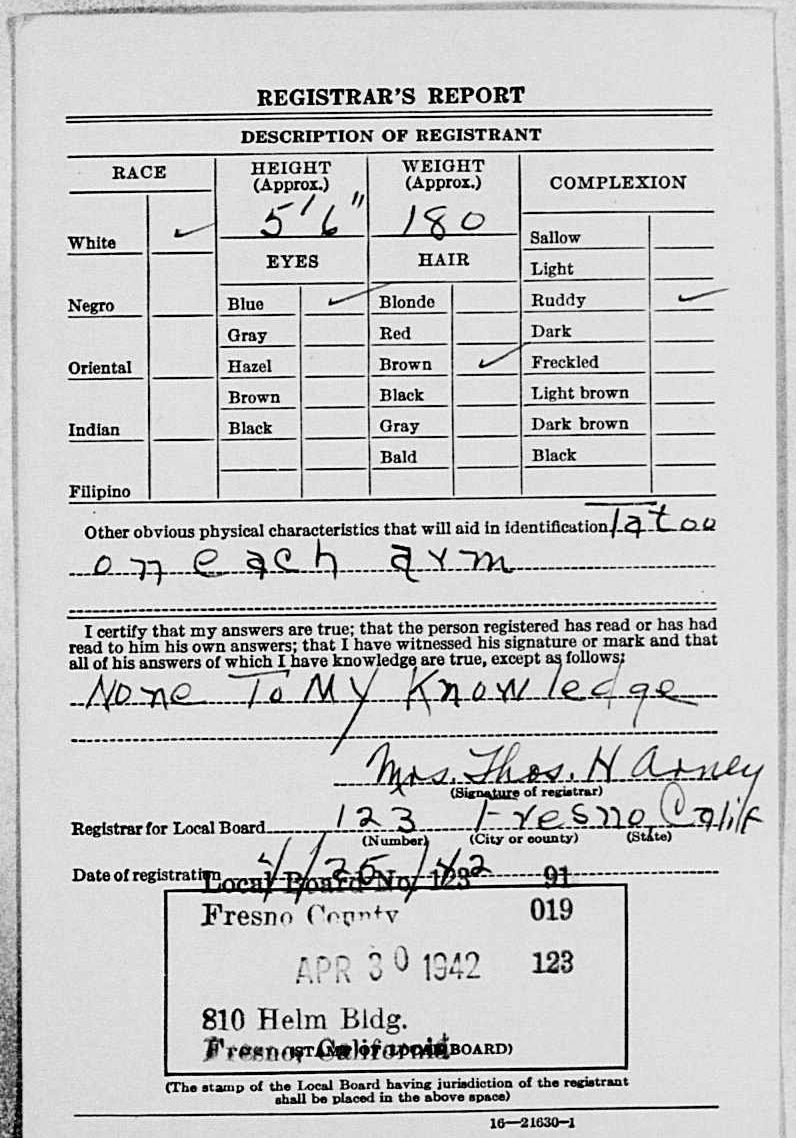 REGISTRAR'S REPORT
DESCRIPTION OF REGISTRANT
RACE
HEIGHT (Approx.)
WEIGHT (Approx.)
COMPLEXION
5'6"
180
White ✓
Sallow
EYES
HAIR
Light
Negro
Blue ✓
Blonde
Ruddy ✓
Gray
Red
Dark
Oriental
Hazel
Brown ✓
Freckled
Brown
Black
Light brown
Indian
Black
Gray
Dark brown
Bald
Black
Filipino
Other obvious physical characteristics that will aid in identification Tatoo
on each arm
I certify that my answers are true; that the person registered has read or has had
read to him his own answers; that I have witnessed his signature or mark and that
all of his answers of which I have knowledge are true, except as follows:
None To My Knowledge
Mrs. Thos. H Arney
(Signature of registrar)
Registrar for Local Board 123 Fresno Calif
(Number) (City or county) (State)
Date of registration 4/25/42
Local Board No. 123 91
Fresno County 019
APR 30 1942 123
810 Helm Bldg.
Fresno, California
(STAMP OF LOCAL BOARD)
(The stamp of the Local Board having jurisdiction of the registrant
shall be placed in the above space)
16—21630-1